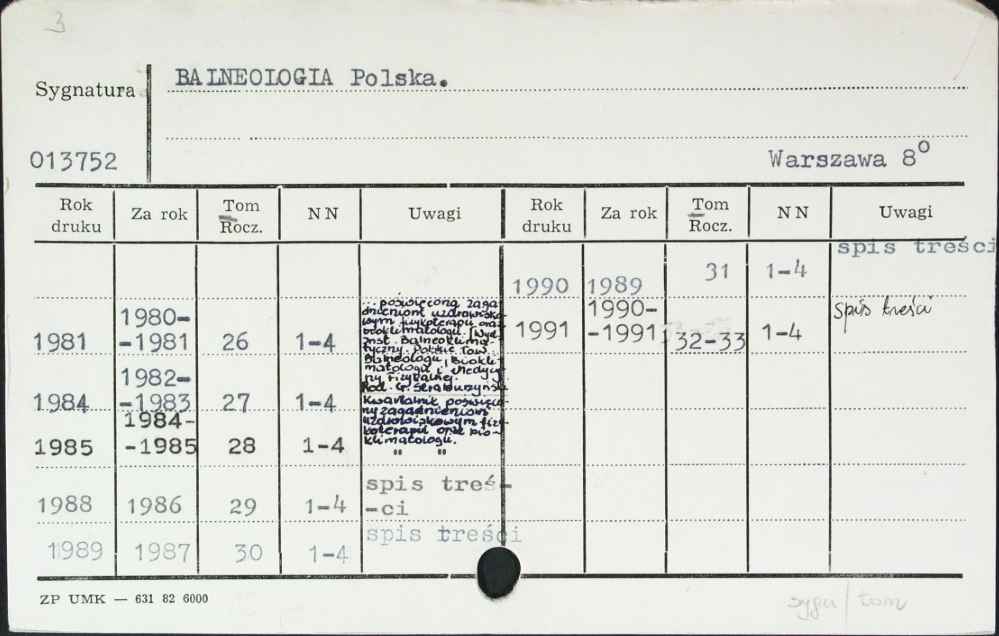 3
BALNEOLOGIA Polska.
Sygnatura
013752
Warszawa 8⁰
Rok druku Za rok Tom Rocz. NN Uwagi Rok druku Za rok Tom Rocz. NN Uwagi
1981 1980-
-1981 26 1-4
... poświęcona zaga-
dnieniom uzdrowisko-
wym fizykoterapii oraz
bioklimatologii. Wyd.
Inst. Balneoklima-
tyczny. Polskie Tow.
Balneologii, Biokli-
matologii i Medycy-
ny Fizykalnej.
Red. G. Straburzyński
1984 1982-
-1983 27 1-4
Kwartalnik poświęco-
ny zagadnieniom
uzdrowiskowym fizy-
koterapii oraz bio-
klimatologii.
1985 1984-
-1985 28 1-4 " "
1988 1986 29 1-4 spis treś-
-ci
1989 1987 30 1-4 spis treści
1990 1989 31 1-4 spis treści
1991 1990-
-1991 32-33 1-4 spis treści
ZP UMK — 631 82 6000
sygn | tom